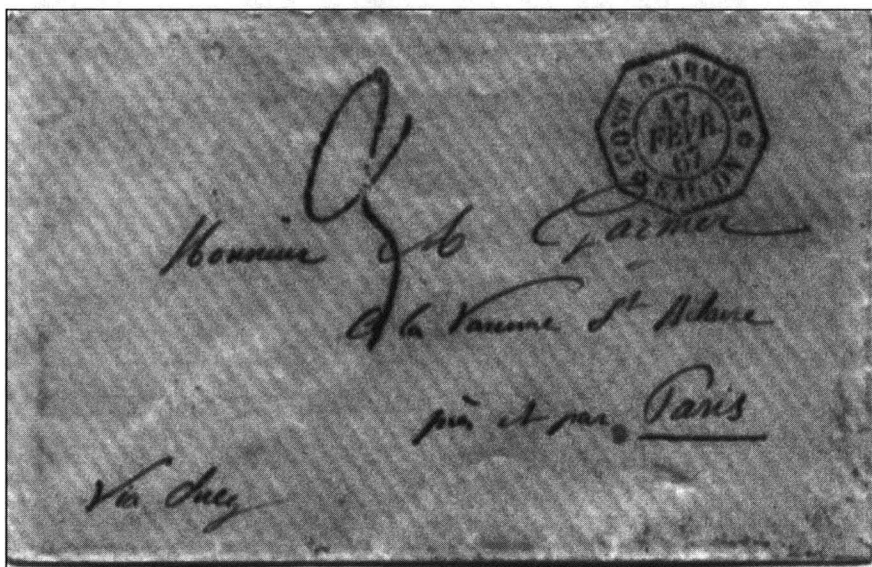 CORR. D. ARMÉES
SAIGON
17
FEVR.
67
Monsieur Garnier
à la Varenne St Hilaire
près et par Paris
Via Suez